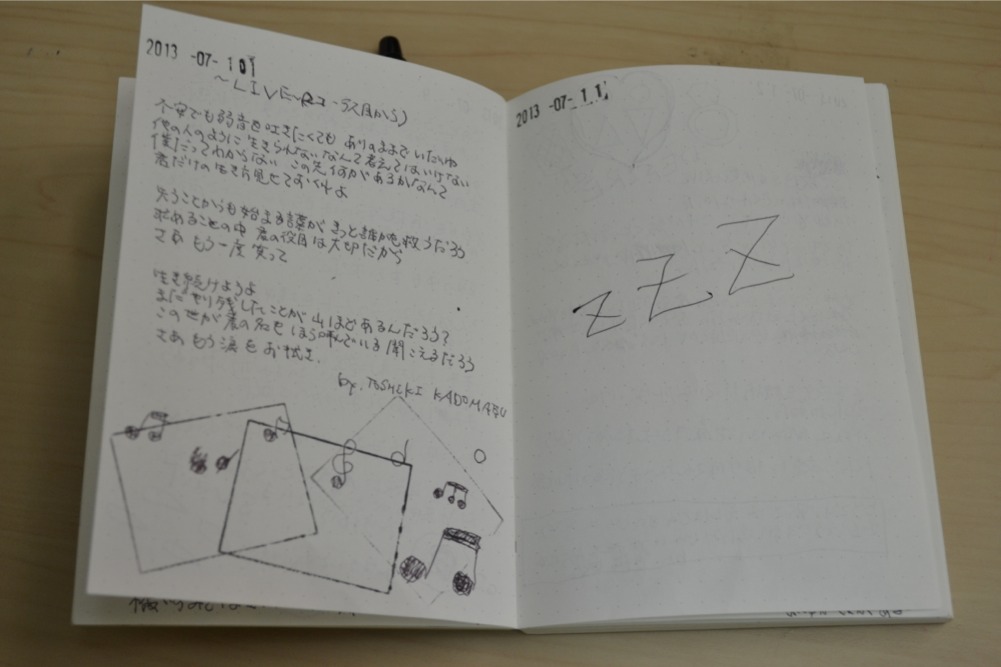 2013 -07- 10
~LIVE
不安でも弱音を吐きたくても ありのままでいたいね
他の人のように生きられないなんて考えてはいけない
僕だってわからない この先何があるかなんて
君だけの生き方見せておくれよ
失うことからも始まる言葉が きっと誰かを救うだろう
求めることの中 君の役目は大切だから
さあ もう一度笑って
生き続けようよ
まだやり残したことが山ほどあるんだろう?
この世が君の名を ほら呼んでいる 聞こえるだろう
さあ もう涙をお拭き.
by. TOSHIKI KADOMATSU
2013 -07- 11
z z z